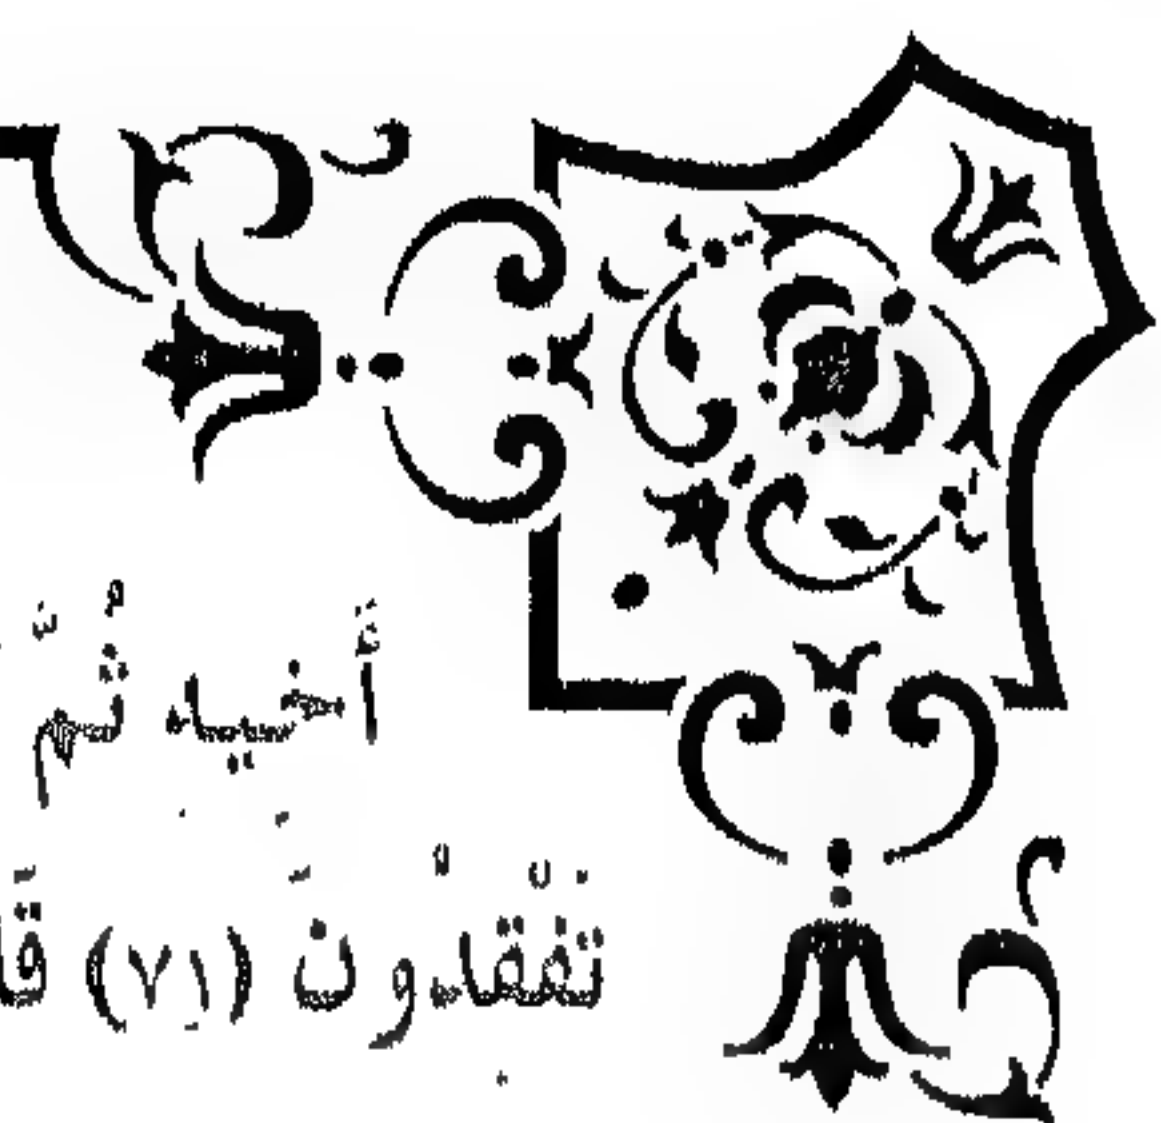 أَخِيهِ ثُمَّ
تَفْقِدُونَ (٧١)